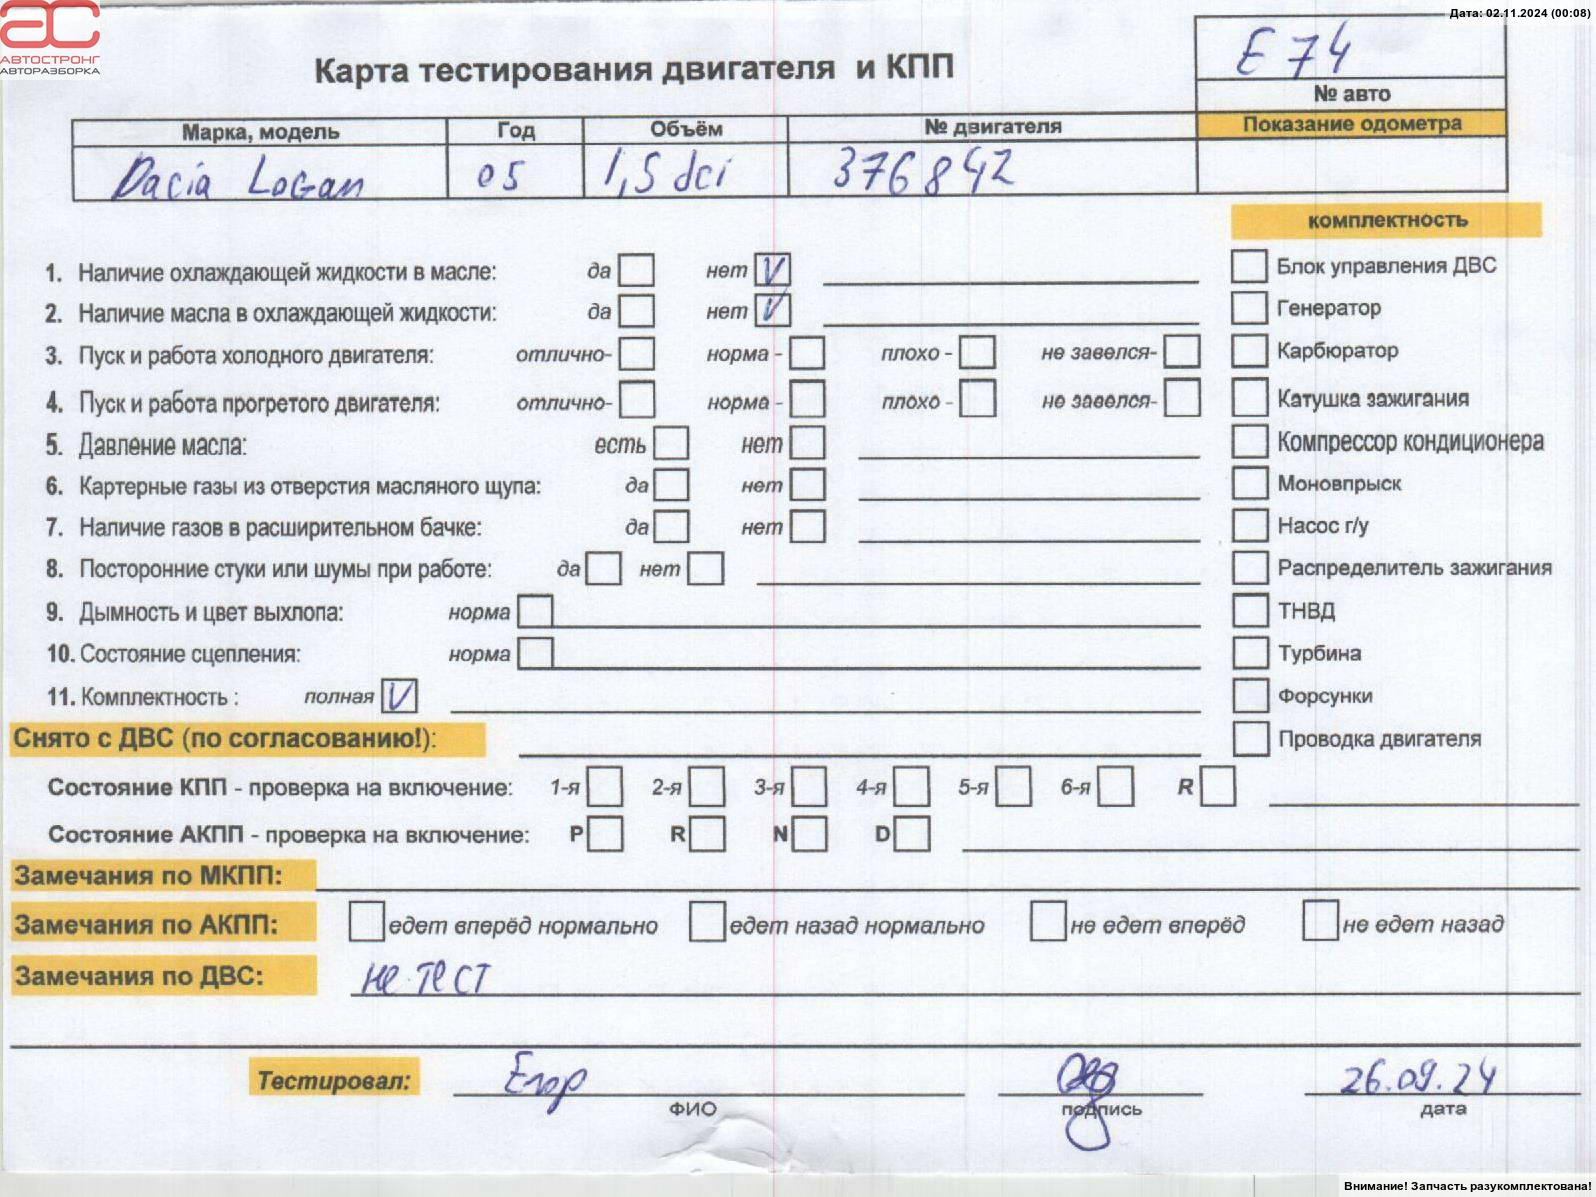 Дата: 02.11.2024 (00:08)
АС
АВТОСТРОНГ
АВТОРАЗБОРКА
Карта тестирования двигателя и КПП
E 74
№ авто
Марка, модель Год Объём № двигателя Показание одометра
Dacia Logan 05 1,5 dci 376842
комплектность
1. Наличие охлаждающей жидкости в масле: да нет V
Блок управления ДВС
2. Наличие масла в охлаждающей жидкости: да нет V
Генератор
3. Пуск и работа холодного двигателя: отлично- норма - плохо - не завелся-
Карбюратор
4. Пуск и работа прогретого двигателя: отлично- норма - плохо - не завелся-
Катушка зажигания
5. Давление масла: есть нет
Компрессор кондиционера
6. Картерные газы из отверстия масляного щупа: да нет
Моновпрыск
7. Наличие газов в расширительном бачке: да нет
Насос г/у
8. Посторонние стуки или шумы при работе: да нет
Распределитель зажигания
9. Дымность и цвет выхлопа: норма
ТНВД
10. Состояние сцепления: норма
Турбина
11. Комплектность : полная V
Форсунки
Снято с ДВС (по согласованию!):
Проводка двигателя
Состояние КПП - проверка на включение: 1-я 2-я 3-я 4-я 5-я 6-я R
Состояние АКПП - проверка на включение: P R N D
Замечания по МКПП:
Замечания по АКПП: едет вперёд нормально едет назад нормально не едет вперёд не едет назад
Замечания по ДВС: не тест
Тестировал: Егор 26.09.24
ФИО подпись дата
Внимание! Запчасть разукомплектована!